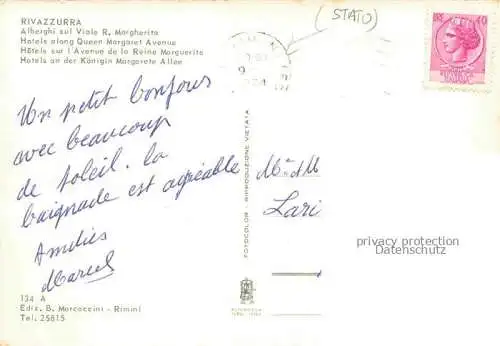 RIVAZZURRA
Alberghi sul Viale R. Margherita
Hotels along Queen Margaret Avenue
Hôtels sur l'Avenue de la Reine Marguerite
Hotels an der Königin Margarete Allee
(STATO)
40
Un petit bonjour
avec beaucoup
de soleil. la
baignade est agréable
Amitiés
Marcel
M. et M
Lari
FOTOCOLOR - RIPRODUZIONE VIETATA
privacy protection
Datenschutz
134 A
Ediz. B. Marcaccini - Rimini
Tel. 25815